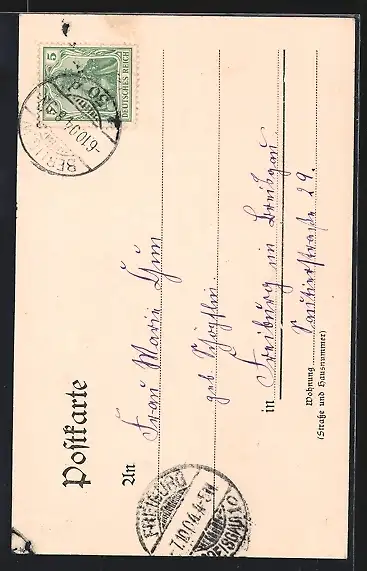 5
DEUTSCHES REICH
BERLIN
6.10.04.
Postkarte
An
Frau Marie
geb.
in Freiburg im Breisgau
Wohnung
(Straße und Hausnummer)
29.
FREIBURG
7.10.04.
(BREISGAU) 1